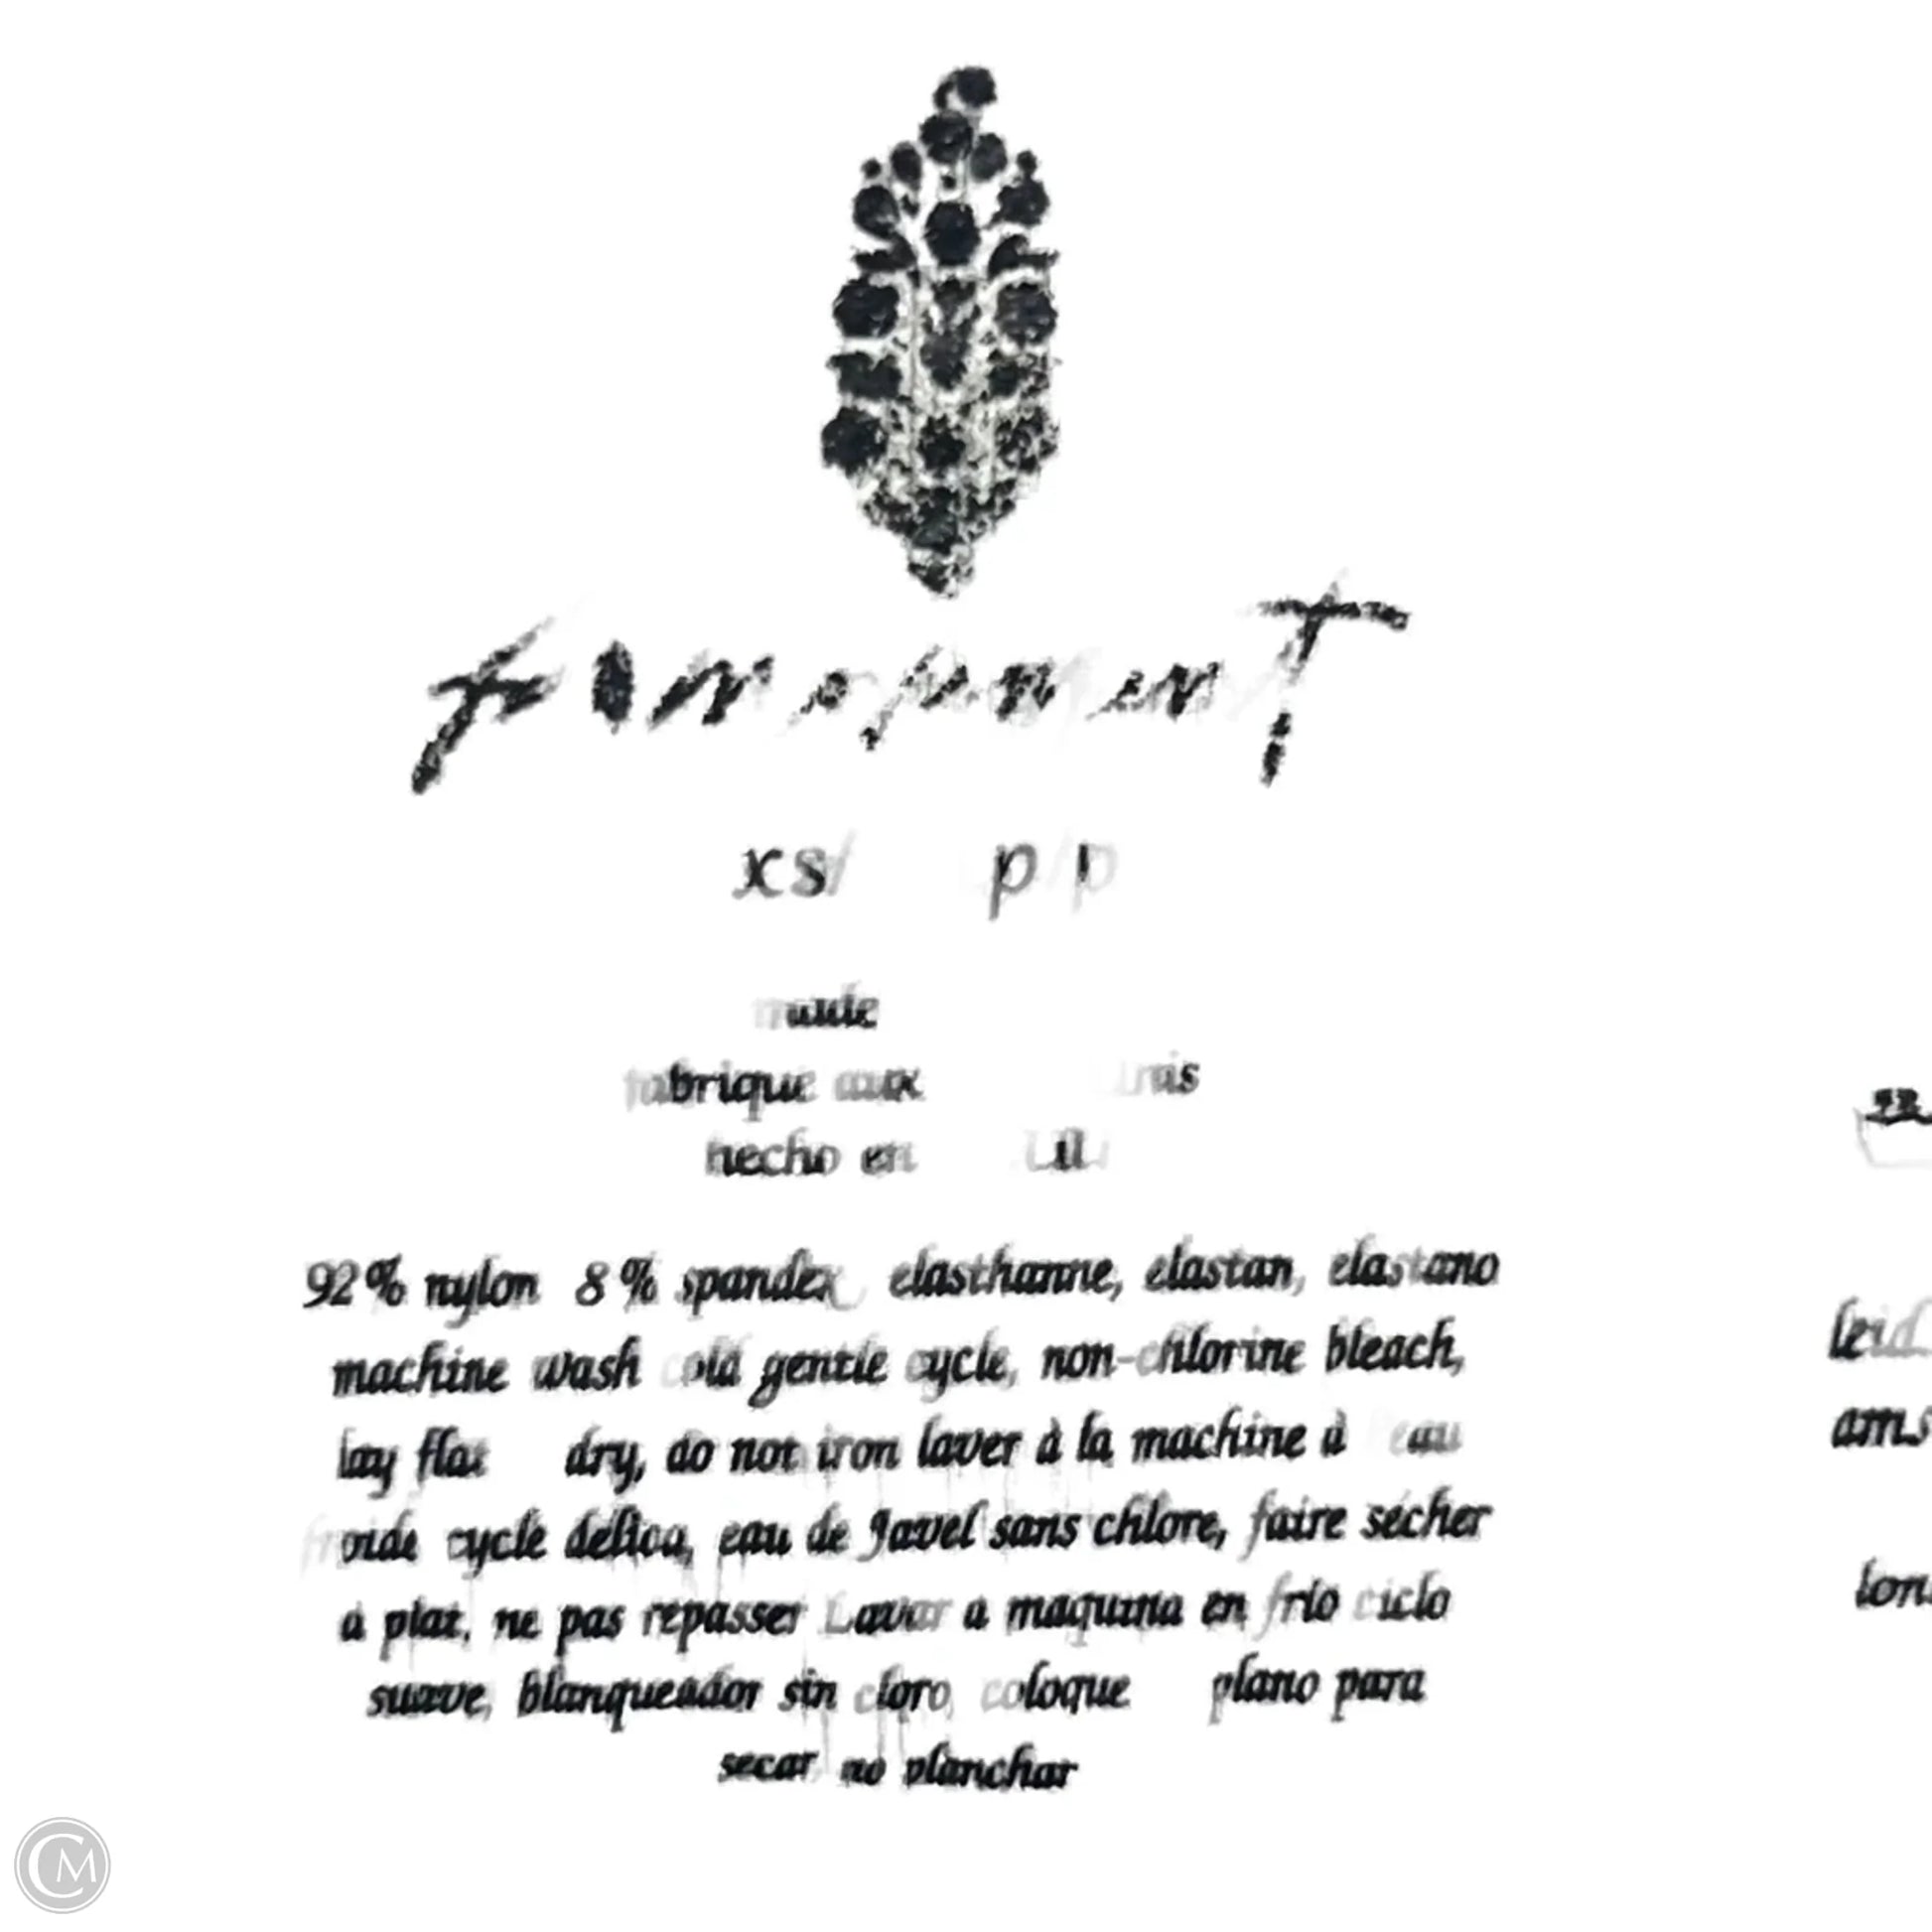 xs/ p/p
made
fabrique aux
hecho en
92% nylon 8% spandex elasthanne, elastan, elastano
machine wash cold gentle cycle, non-chlorine bleach,
lay flat dry, do not iron laver à la machine à l'eau
froide cycle délica, eau de Javel sans chlore, faire sécher
a plat, ne pas repasser Lavar a maquina en frio ciclo
suave, blanqueador sin cloro, coloque plano para
secar, no planchar
CM